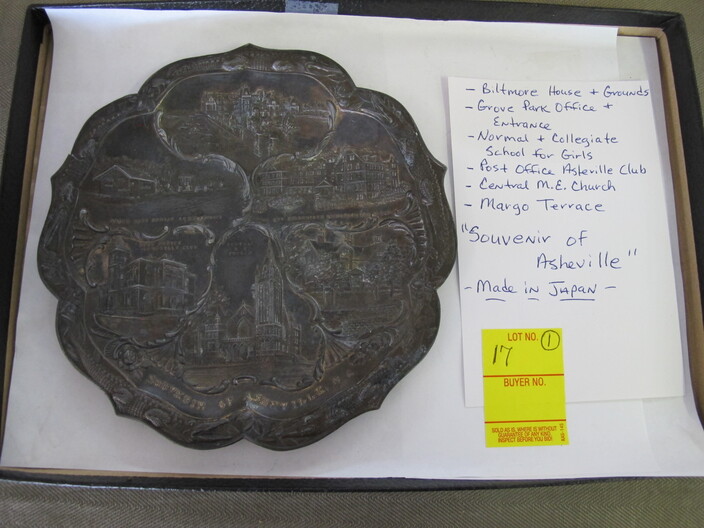 SOUVENIR OF ASHEVILLE
- Biltmore House + Grounds
- Grove Park Office +
Entrance
- Normal + Collegiate
School for Girls
- Post Office Asheville Club
- Central M.E. Church
- Margo Terrace
"Souvenir of
Asheville"
- Made in Japan -
LOT NO. 1
17
BUYER NO.
SOLD AS IS, WHERE IS WITHOUT
GUARANTEE OF ANY KIND.
INSPECT BEFORE YOU BID!